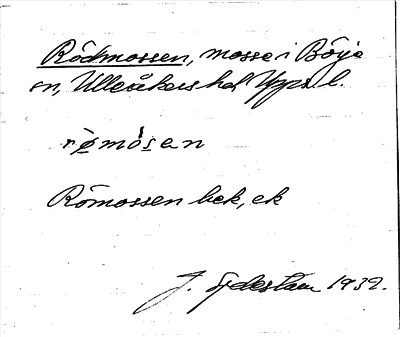 Rödmossen, mosse i Börje
sn, Ulleråkers hd, Upps. l.
rø̀mósen
Römossen bek, ek
J. 1932.